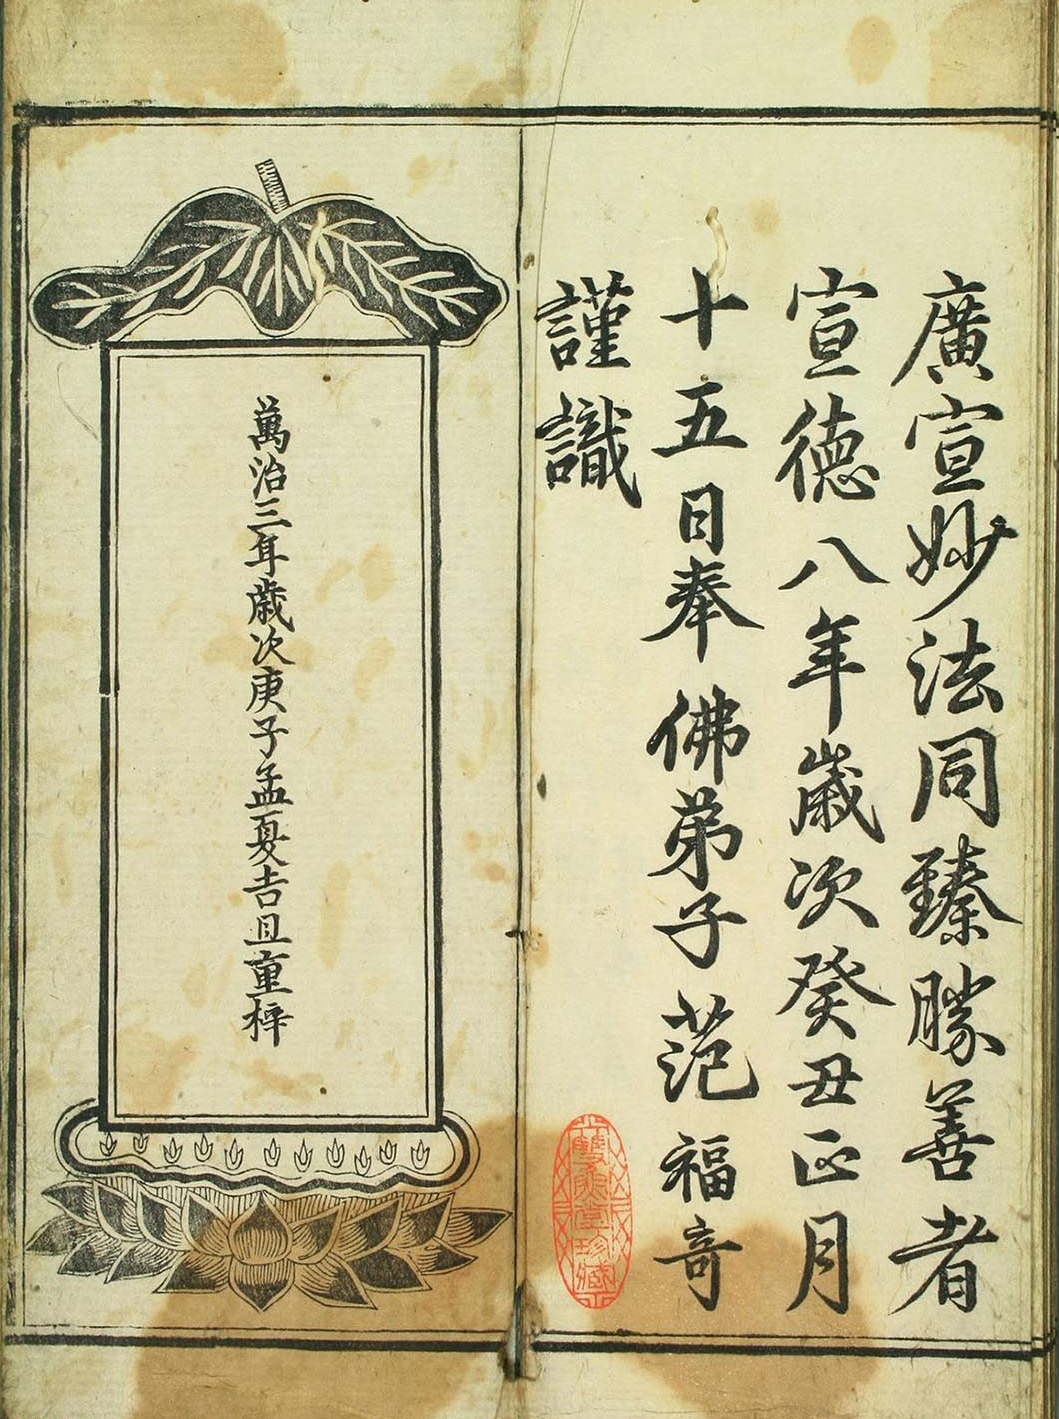 廣宣妙法同臻勝善者
宣德八年歲次癸丑正月
十五日奉佛弟子范福奇
謹識
萬治三年歲次庚子孟夏吉旦重梓